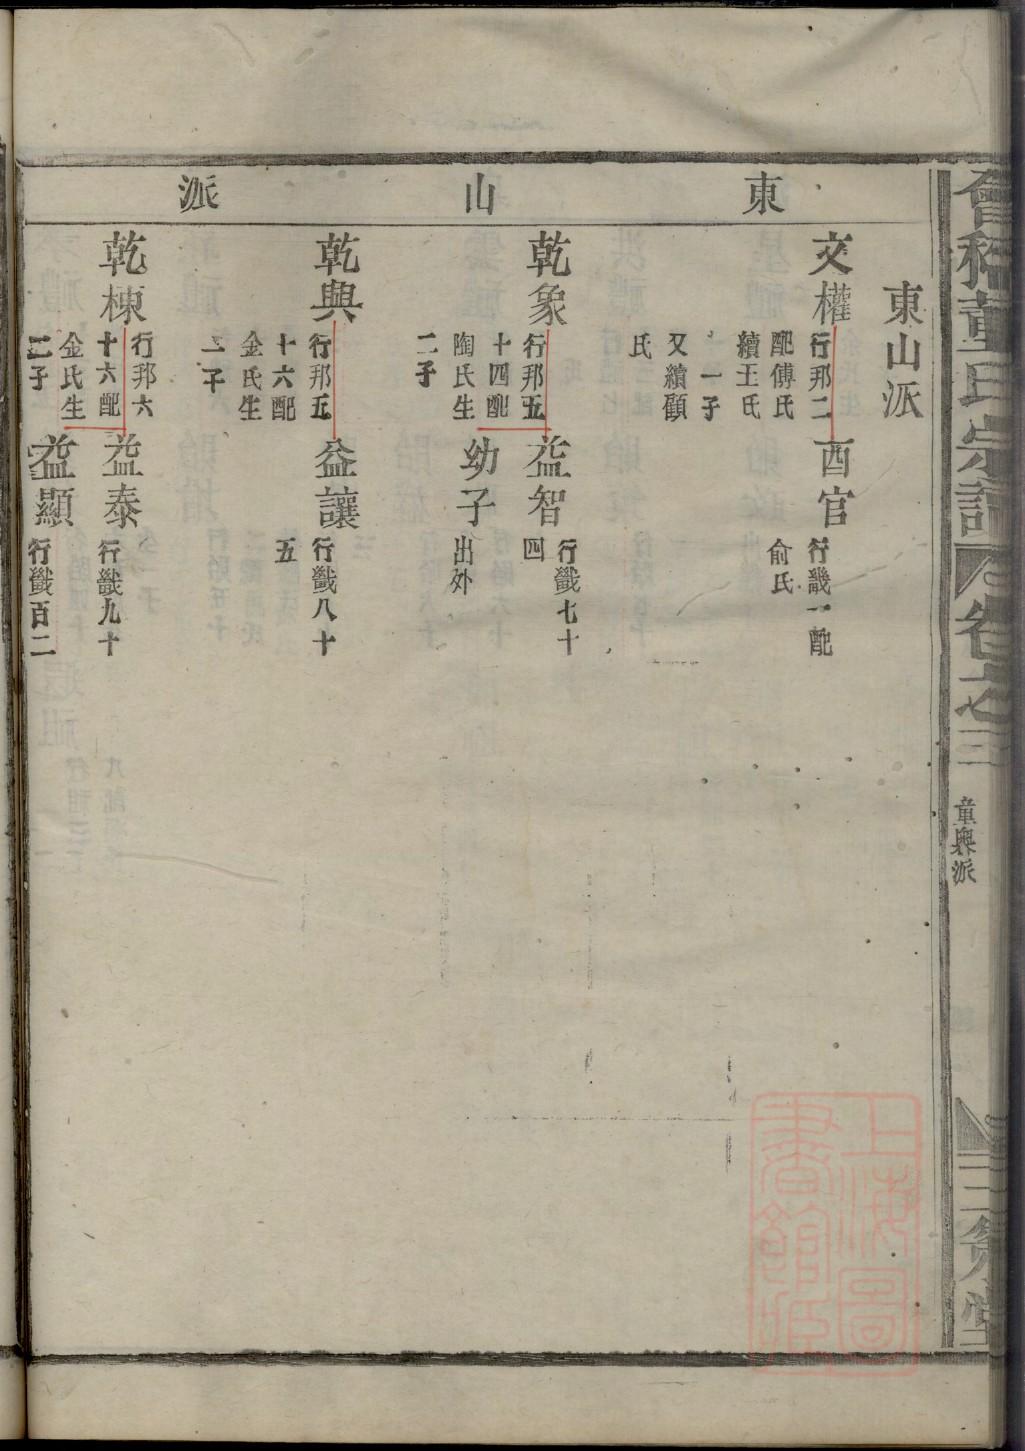 會稽董氏宗譜
卷之三
童與派
三策堂
東山派
東山派
文權
行邦二
配傅氏
續王氏
一子
又續顧
氏
酉官
行畿一配
俞氏
乾象
行邦五
十四配
陶氏生
二子
益智
行畿七十
四
幼子
出外
乾與
行邦五
十六配
金氏生
一子
益讓
行畿八十
五
乾棟
行邦六
十六配
金氏生
二子
益泰
行畿九十
益顯
行畿百二
上海圖
書館藏